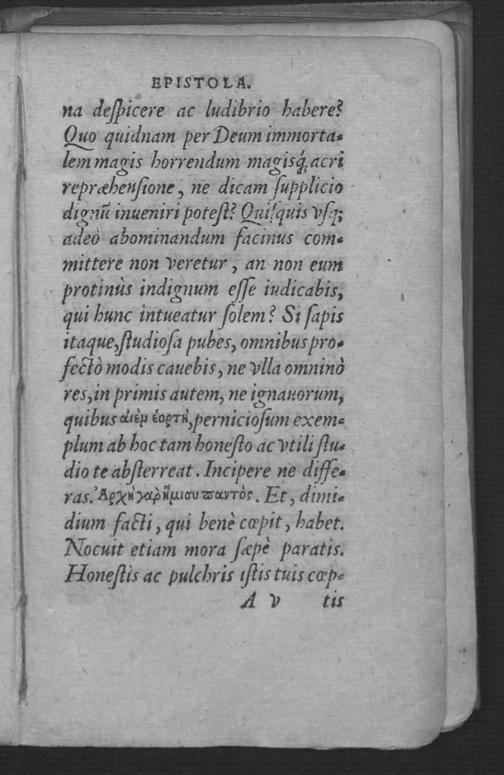 EPISTOLA.
na deſpicere ac ludibrio habere?
Quo quidnam per Deum immorta-
lem magis horrendum magisq́; acri
repræhenſione, ne dicam ſupplicio
dignũ inueniri poteſt? Quiſquis vſq;
adeò abominandum facinus com-
mittere non veretur, an non eum
protinùs indignum eſſe iudicabis,
qui hunc intueatur ſolem? Si ſapis
itaque, ſtudioſa pubes, omnibus pro-
fectò modis cauebis, ne vlla omninò
res, in primis autem, ne ignauorum,
quibus αἰὲμ ἑορτὴ, perniciosum exem-
plum ab hoc tam honeſto ac vtili ſtu-
dio te abſterreat. Incipere ne diffe-
ras. Ἀρχὴ γαρ ἥμισυ παντὸς. Et, dimi-
dium facti, qui benè cœpit, habet.
Nocuit etiam mora ſæpè paratis.
Honeſtis ac pulchris iſtis tuis cœp-
A v tis